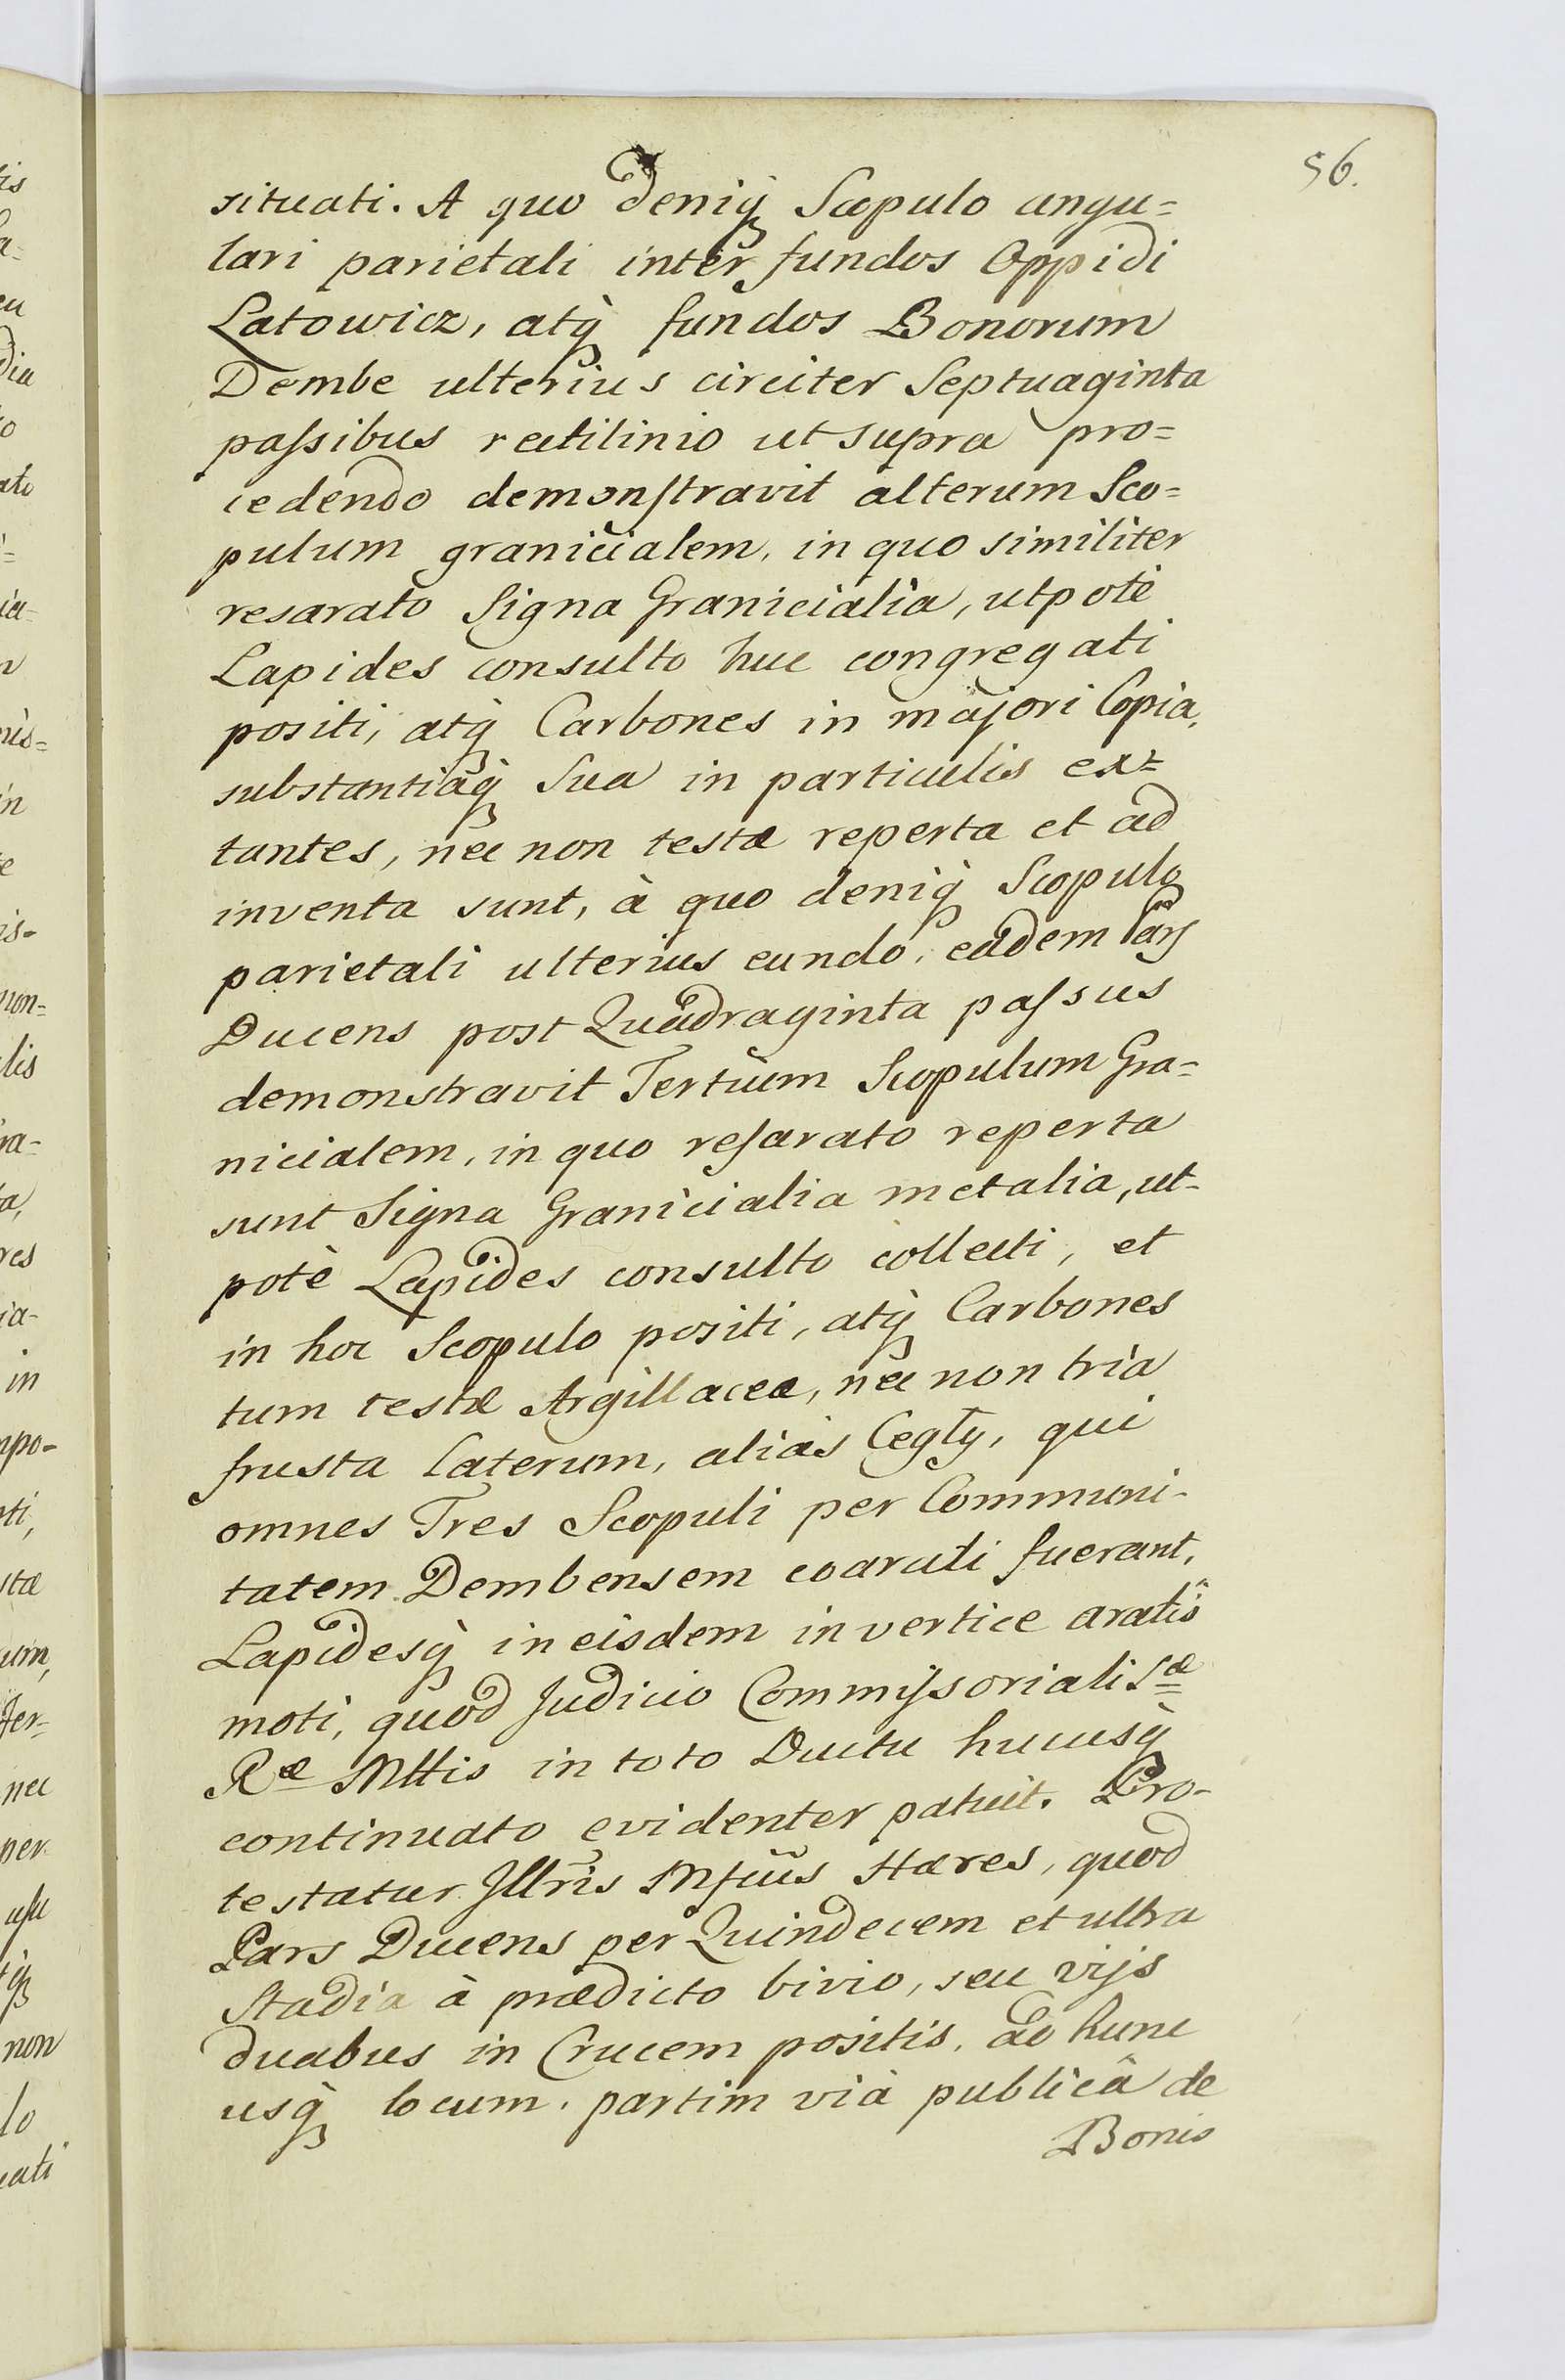 56.
situati. A quo deniq́ Scopulo angu=
lari parietali inter fundos Oppidi
Latowicz, atq́ fundos Bonorum
Dembe ulterius circiter Septuaginta
paſsibus rectilinio ut supra pro=
cedendo demonſtravit alterum Sco=
pulum granicialem, in quo similiter
resarato Signa Granicialia, utpotè
Lapides consulto huc congregati
positi, atq́ Carbones in majori Copia,
substantiaq́ Sua in particulis ex=
tantes, nec non testæ reperta et ad
inventa sunt, à quo deniq́ Scopulo
parietali ulterius eundo, eadem Pars
Ducens post Quadraginta paſsus
demonstravit Tertium Scopulum Gra=
nicialem, in quo reſarato reperta
sunt Signa Granicialia metalia, ut-
potè Lapides consulto collecti, et
in hoc Scopulo positi, atq́ Carbones
tum testæ Argillaceæ, nec non tria
frusta laterum, aliàs Cegły, qui
omnes Tres Scopuli per Communi-
tatem Dembensem coarati fuerant,
Lapidesq́ in eisdem in vertice aratis
moti, quod Judicio Commiſsoriali Sæ
Ræ Mttis in toto Ductu hucusq́
continuato evidenter patuit. Pro-
testatur Illris Mfcus Hæres, quod
Pars Ducens per Quindecem et ultra
Stadia à prædicto bivio, seu vijs
duabus in Crucem positis, ad hunc
usq́ locum, partim vià publicâ de
Bonis